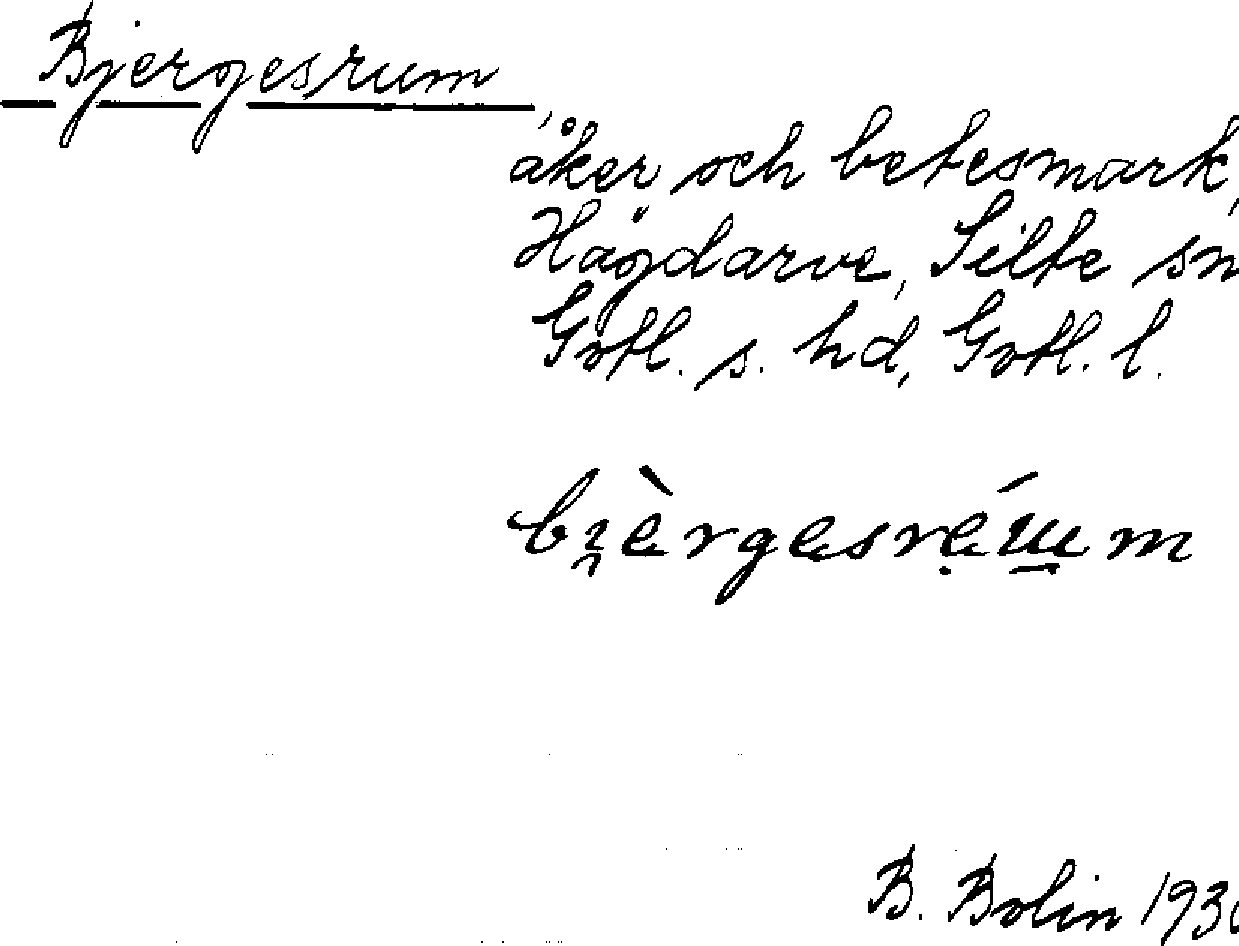 Bjergesrum,
åker och betesmark,
Hägdarve, Silte sn
Gotl. s. hd, Gotl. l.
B. Bolin 193